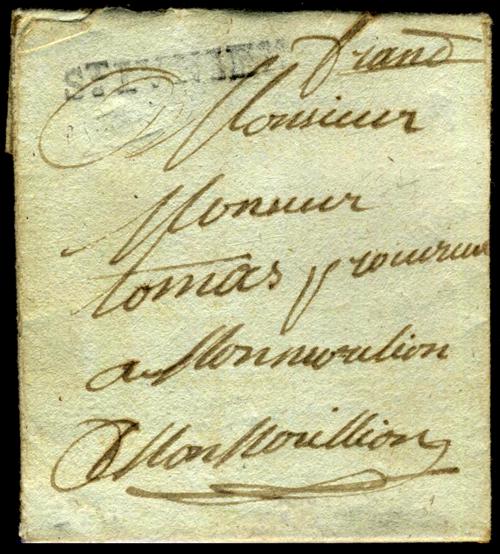 ST JUNIEN franc
Monsieur
Monsieur
tomas procureur
a Monmorilion
A MonMorillion